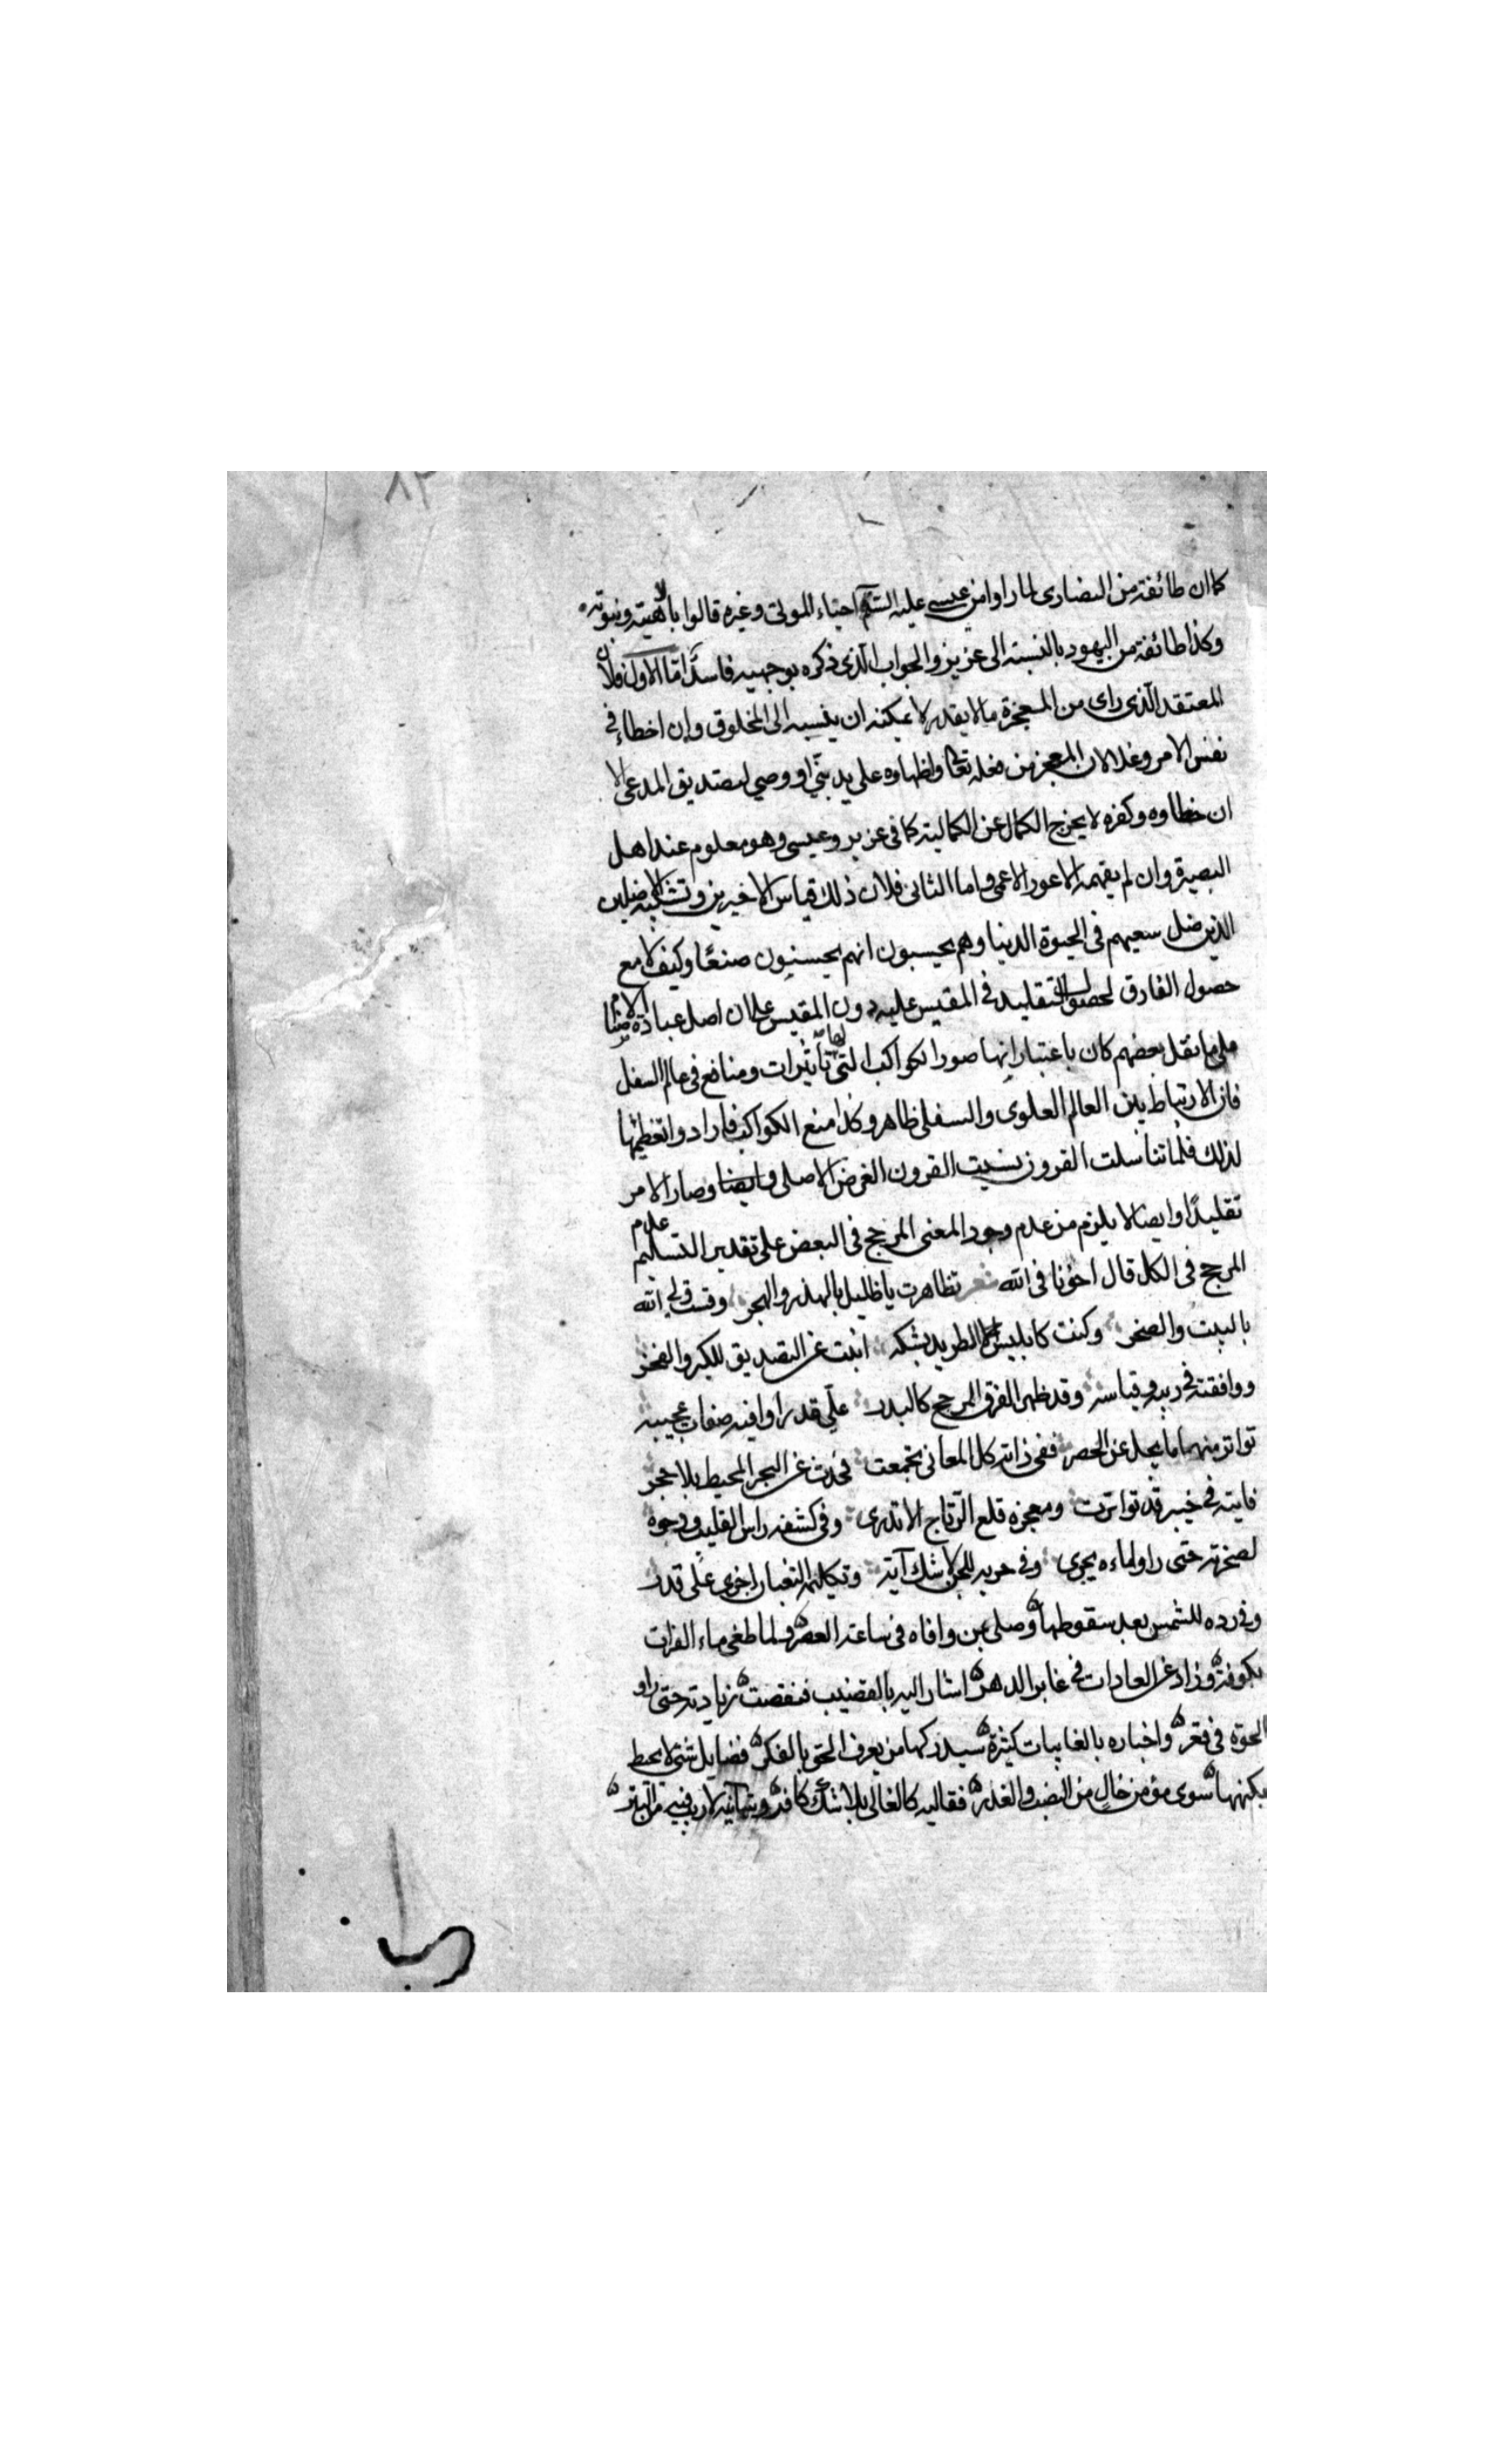 ٨٣
كما ان طائفة من النصارى لما راوا من عيسى عليه السلم احياء الموتى وغيره قالوا بالاهيته ونبوته
وكذا طائفة من اليهود بالنسبة الى عزيز والجواب الذى ذكره بوجهيه فاسد اما الاول فلان
المعتقد الذى راى من المعجزة ما لا يقدر لا يمكنه ان ينسبه الى المخلوق وان اخطاء فى
نفس الامر وغلا لان المعجز من فعله تعالى واظهاره على يد نبى او وصي لتصديق المدعى الا
ان خطاوه وكفره لا يخرج الكمال عن الكمالية كما فى عزير وعيسى وهو معلوم عند اهل
البصيرة وان لم يفهمه الاعور الاعمى واما الثانى فلان ذلك قياس الاخيرين وتشكيك
الذين ضل سعيهم فى الحيوة الدنيا وهم يحسبون انهم يحسنون صنعا وكيف لا مع
حصول الفارق لحصول التقليد فى المقيس عليه دون المقيس على ان اصل عبادة الاصنام
على ما نقل بعضهم كان باعتبار انها صور الكواكب التى لها تأثيرات ومنافع فى عالم السفل
فان الارتباط بين العالم العلوى والسفلى ظاهر وكذا منع الكواكب فارادوا تعظيمها
لذلك فلما تناسلت القرون نسيت القرون الغرض الاصلى وايضا وصار الامر
تقليدا وايضا لا يلزم من عدم وجود المعنى المرجح فى البعض على تقدير التسليم عدم
المرجح فى الكل قال اخونا فى الله شعر تظاهرت يا ظليل بالهذر والهجر وقست ولى الله
بالبيت والصخر وكنت كابليس الطريد بشكه ابنت عن التصديق للكبر والفخر
ووافقته فى دينه وقياسه وقد ظهر الفرق المرجح كالبدر على قدر اوا فيه صفات عجيبة
تواتر منها ما يجل عن الحصر ففى ذاته كل المعانى تجمعت فحدث عن البحر المحيط بلا حجر
فايته فى خيبر قد تواترت ومعجزه قلع الرتاج الا تدرى وفى كشفه راس القليب ودحوه
لصخرته حتى راوا ماءه يجرى وفى حربه للجن لا شك آية وتكليمه الثعبان اخرى على قدر
وفى رده للشمس بعد سقوطها وصلى بمن وافاه فى ساعة العصر ولما طغى ماء الفرات
بكوفة وزاد عن العادات فى غابر الدهر اشار اليه بالقضيب فنقصت زيادته حتى راو
الحوت فى قعر واخباره بالغايبات كثيرة سيدركها من يعرف الحق بالفكر فضايل شتى لا يحط
بكنهها سوى مؤمن خال من النصب والغدر فقاليه كالغالى بلا شك كافر